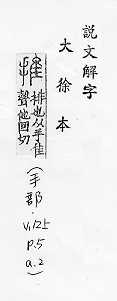 說文解字
大徐本
推 排也从手隹
聲他回切
(手部.
V.125
P.5
a.2)